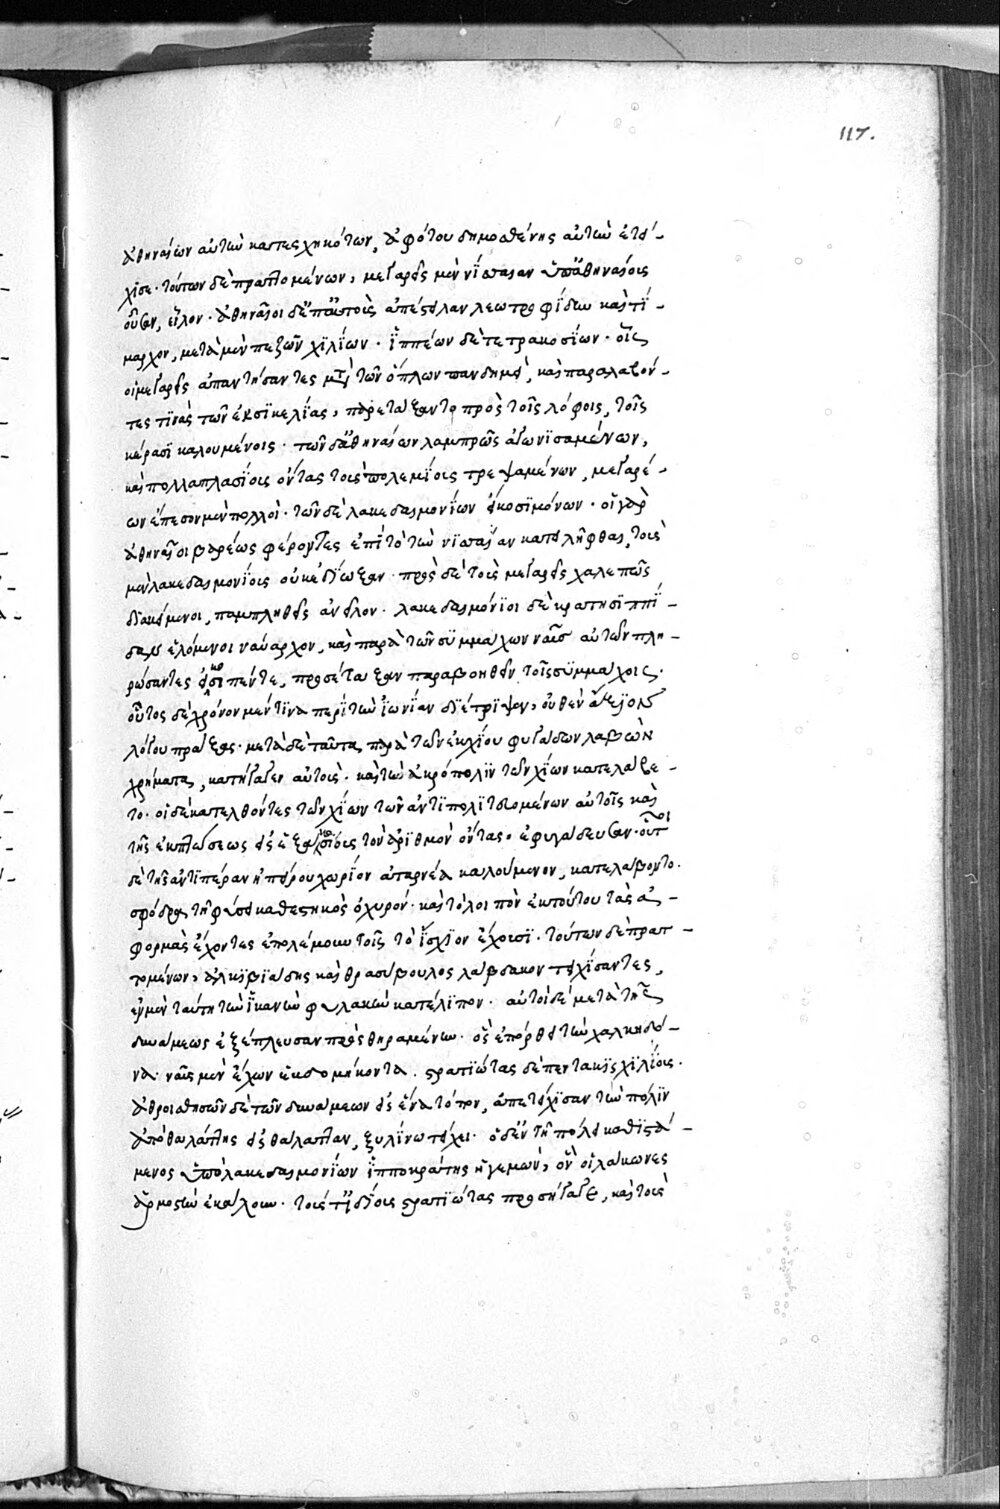 ἀθηναίων αὐτὴν κατεσχηκότων, ἀφότου δημοσθένης αὐτὴν ἐτεί-
χισε· τούτων δὲ πραττομένων, μεγαρεῖς μὲν νίσαιαν ὑπἀθηναίοις
οὖσαν, εἷλον· ἀθηναῖοι δἐπαὐτοὺς ἀπέστειλαν λεωτροφίδην καὶ τί-
μαρχον, μετὰ μὲν πεζῶν χιλίων· ἱππέων δὲ τετρακοσίων· οἷς
οἱ μεγαρεῖς ἀπαντήσαντες μετὰ τῶν ὅπλων πανδημεὶ, καὶ παραλαβόν-
τες τινὰς τῶν ἐκ σικελίας, παρετάξαντο πρὸς τοῖς λόφοις, τοῖς
κέρασι καλουμένοις· τῶν δἀθηναίων λαμπρῶς ἀγωνισαμένων,
καὶ πολλαπλασίοις ὄντας τοὺς πολεμίοις τρεψαμένων, μεγαρέ-
ων ἔπεσον μὲν πολλοὶ· τῶν δὲ λακεδαιμονίων εἴκοσι μόνων· οἱ γὰρ
ἀθηναῖοι βαρέως φέροντες ἐπὶ τὸ τὴν νίσαιαν κατειλῆφθαι, τοὺς
μὲν λακεδαιμονίοις οὐκ ἐδίωξαν· πρὸς δὲ τοὺς μεγαρεῖς χαλεπῶς
διακείμενοι, παμπληθεῖς ἀνεῖλον· λακεδαιμόνιοι δὲ κρατησιππί-
δαν ἑλόμενοι ναύαρχον, καὶ παρὰ τῶν συμμάχων ναῦς αὐτῶν πλη-
ρώσαντες εἴκοσι πέντε, προσέταξαν παραβοηθεῖν τοῖς συμμάχοις·
οὗτος δὲ χρόνον μέν τινα περὶ τὴν ἰωνίαν διέτριψεν, οὐθὲν ἄξιον
λόγου πράξας· μετὰ δὲ ταῦτα παρὰ τῶν ἐκ χίου φυγάδων λαβὼν
χρήματα, κατήγαγεν αὐτοὺς· καὶ τὴν ἀκρόπολιν τῶν χίων κατελάβε-
το· οἱ δὲ κατελθόντες τῶν χίων τῶν ἀντιπολιτευομένων αὐτοῖς καὶ
τῆς ἐκπτώσεως εἰς ἑξακοσίοις τὸν ἀριθμὸν ὄντας· ἐφυγάδευσαν· οὗτοι
δὲ τῆς ἀντιπέραν ἠπείρου χωρίον ἀταρνέα καλούμενον, κατελάβοντο·
σφόδρα τῇ φύσει καθεστηκὸς ὀχυρόν· καὶ τὸ λοιπὸν ἐκ τούτου τὰς ἀ-
φορμὰς ἔχοντες ἐπολέμουν τοῖς τὸ ἴσχιον ἔχουσι· τούτων δὲ πρατ-
τομένων, ἀλκιβιάδης καὶ θρασύβουλος λάβσακον τειχίσαντες,
ἐν μὲν ταύτῃ τὴν ἱκανὴν φυλακὴν κατέλιπον· αὐτοὶ δὲ μετὰ τῆς
δυνάμεως ἐξέπλευσαν πρὸς θηραμένην· ὃς ἐπόρθει τὴν χαλκηδό-
να· ναῦς μὲν ἔχων ἑβδομήκοντα. στρατιώτας δὲ πεντακισχιλίοις·
ἀθροισθησῶν δὲ τῶν δυνάμεων εἰς ἕνα τόπον, ἀπετείχισαν τὴν πόλιν
ἀπὸ θαλάττης εἰς θάλατταν, ξυλίνῳ τείχει· ὁ δἐν τῇ πόλει καθεστά-
μενος ὑπὸ λακεδαιμονίων ἱπποκράτης ἡγεμὼν, ὃν οἱ λάκωνες
ἁρμοστὴν ἐκάλουν· τούς τἰδίοις στρατιώτας προσήγαγε, καὶ τοὺς
117.